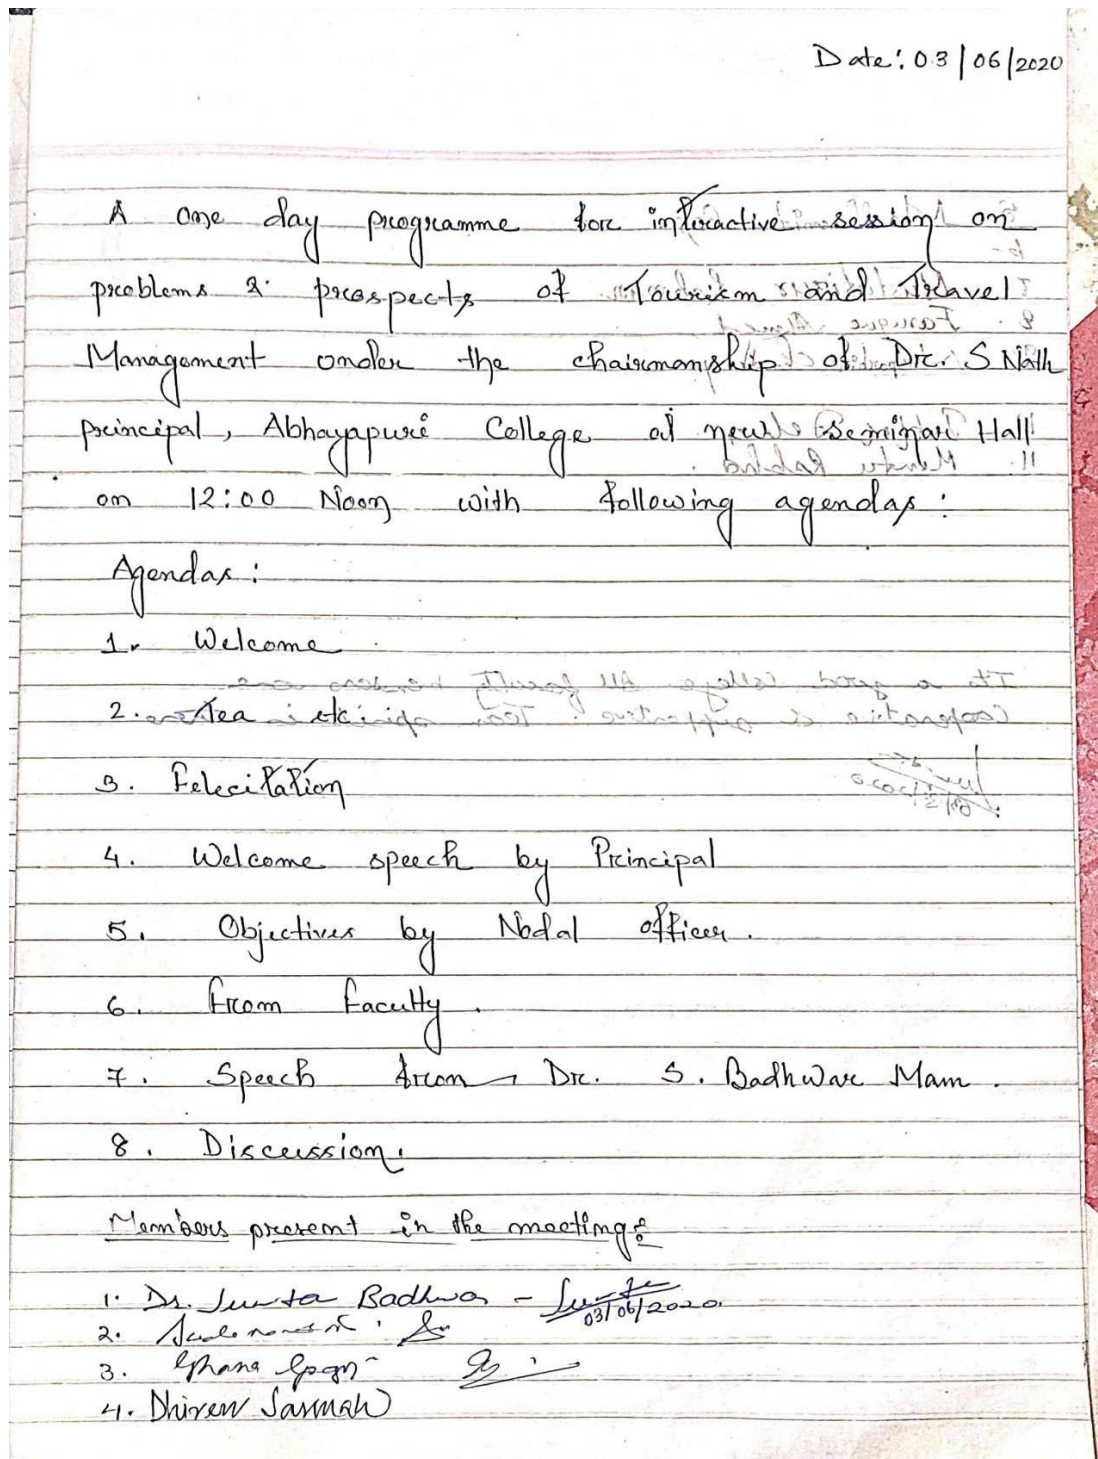 Date: 03/06/2020
A one day programme for interactive session on
problems & prospects of Tourism and Travel
Management under the chairmanship of Dr. S Nath
principal, Abhayapuri College at new Seminar Hall
on 12:00 Noon with following agendas:
Agendas:
1. Welcome
2. Tea etc
3. Felecitation
4. Welcome speech by Principal
5. Objectives by Nodal officer.
6. From Faculty.
7. Speech from Dr. S. Badhwar Mam.
8. Discussion.
Members present in the meeting:
1. Dr. Sunita Badhwar -
03/06/2020
2.
3.
4. Dhiren Sarmah